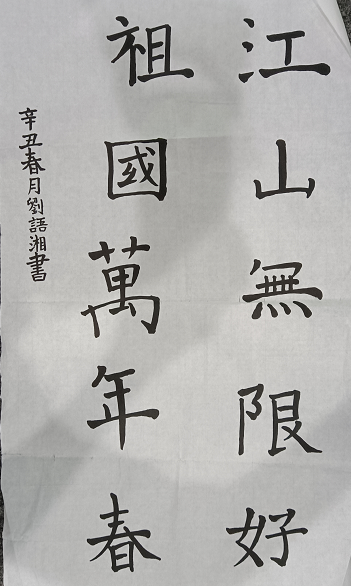 江山無限好
祖國萬年春
辛丑春月劉語湘書